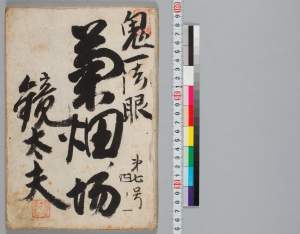 鬼一法眼
菊畑ノ場
鏡太夫
第七号